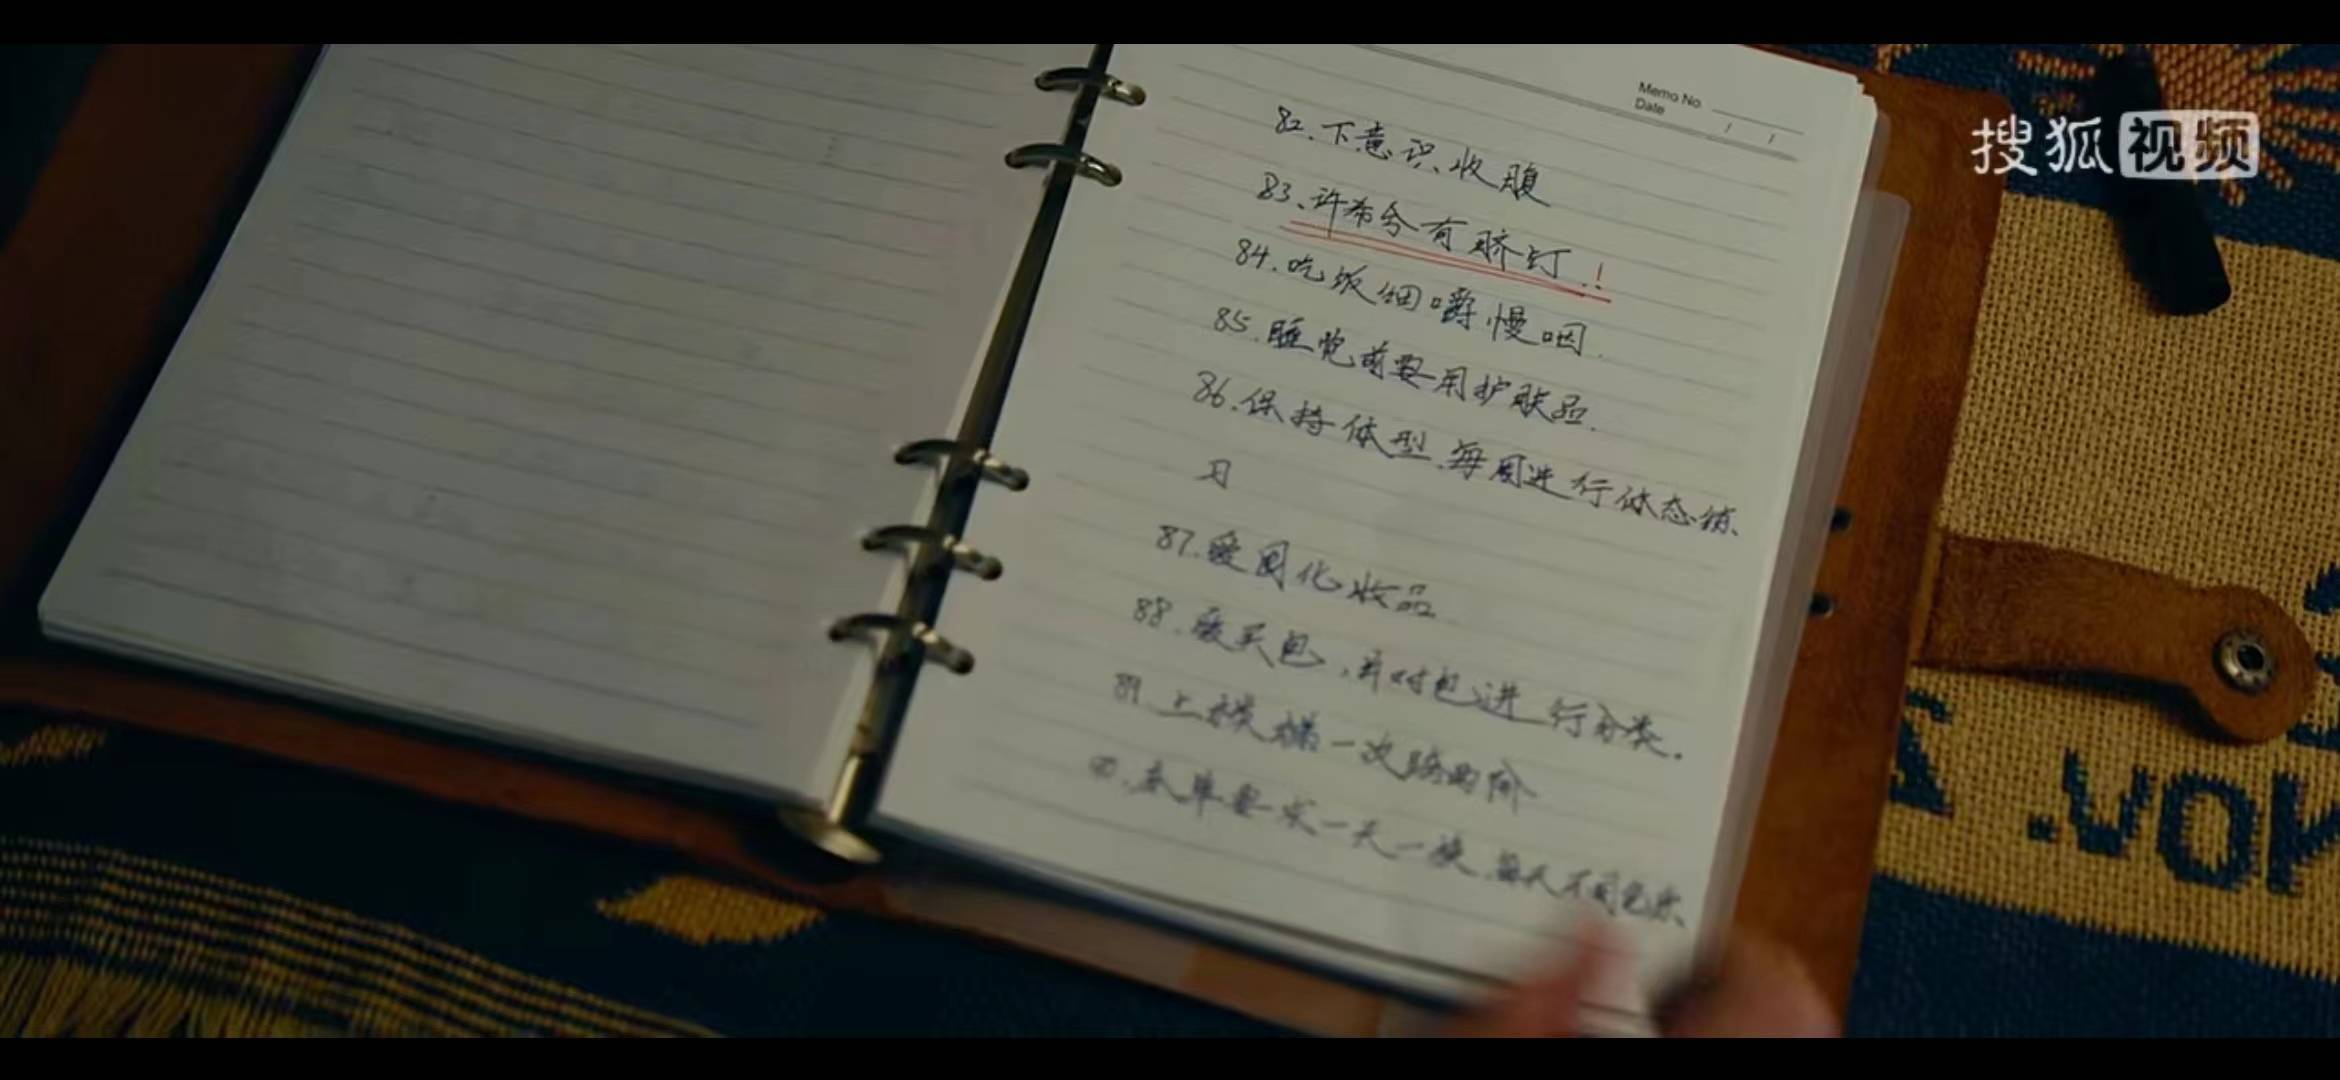 Memo No.
Date / /
搜狐视频
82.下意识收腹
83、许布兮有脐钉!
84.吃饭细嚼慢咽.
85.睡觉前要用护肤品.
86.保持体型.每周进行体态练
习
87.爱用化妆品
88.爱买包,并对包进行分类.
89.上楼梯一次跨两阶
90.床单要求一天一换.每天不同